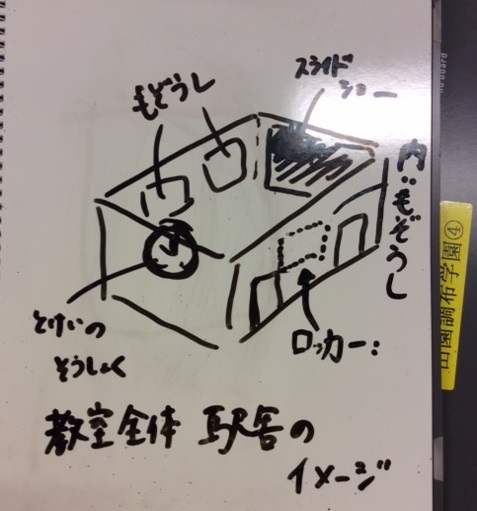 もぞうし
スライド
ショー
内：もぞうし
とけいの
そうしょく
ロッカー：
教室全体 駅舎の
イメージ